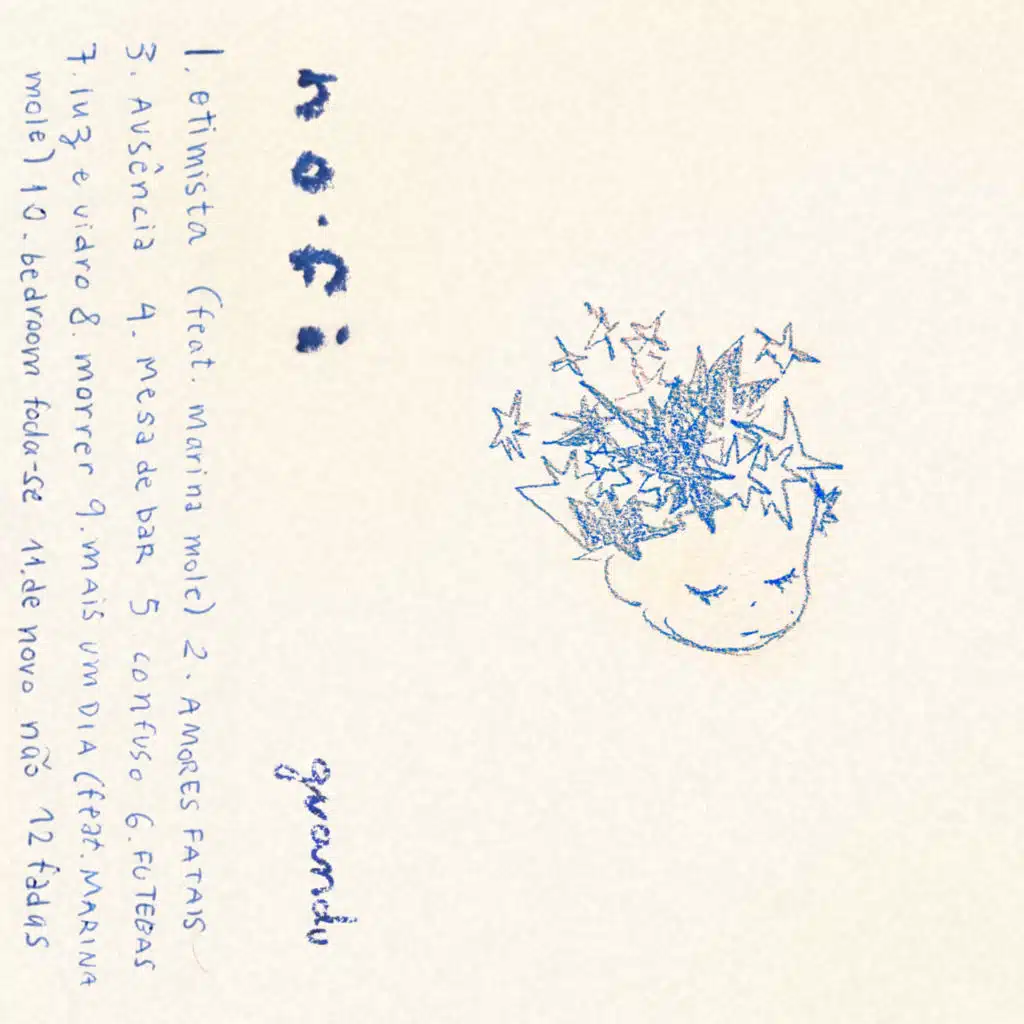 no.fi guandu
1. otimista (feat. marina mole) 2. AMORES FATAIS
3. AUSência 4. mesa de baR 5 confuso 6. FUTEBAS
7. luz e vidro 8. morrer 9. MAIS UM DIA (feat. MARINA
mole) 10. bedroom foda-se 11. de novo não 12 fadas